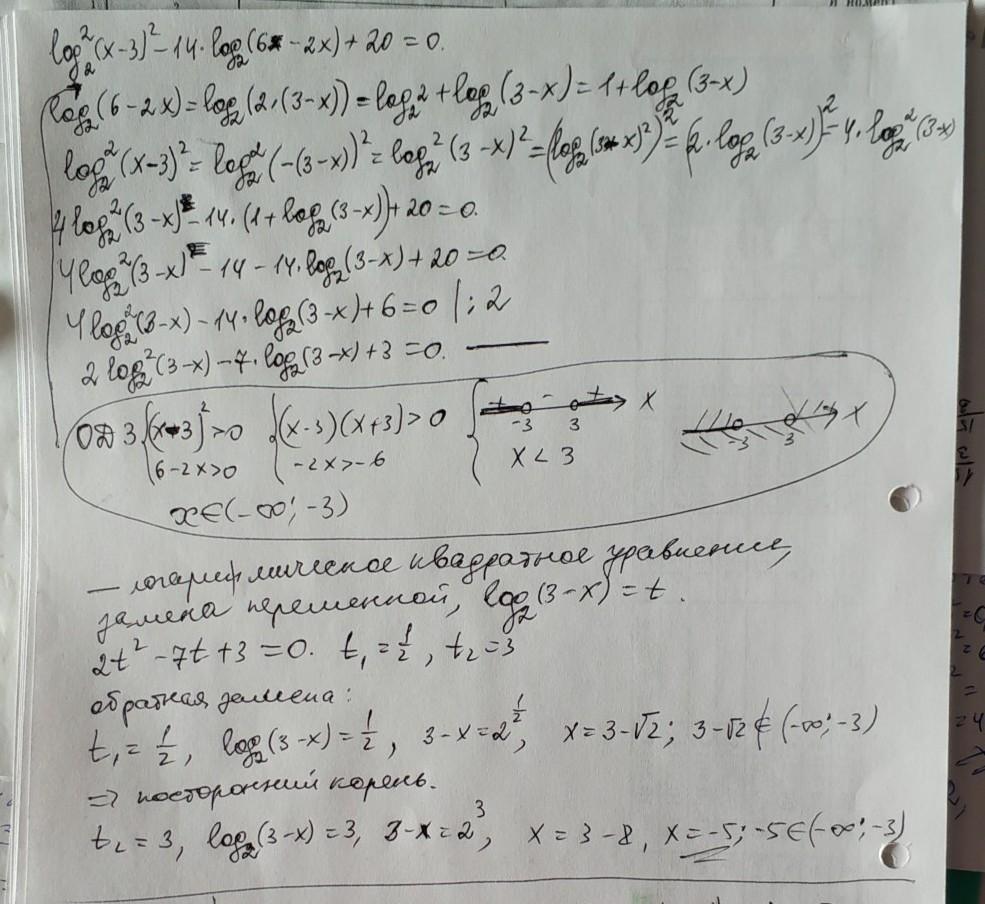 log₂²(x-3)² - 14·log₂(6 - 2x) + 20 = 0.
log₂(6-2x) = log₂(2·(3-x)) = log₂2 + log₂(3-x) = 1 + log₂(3-x)
log₂²(x-3)² = log₂²(-(3-x))² = log₂²(3-x)² = (log₂(3-x)²)² = (2·log₂(3-x))² = 4·log₂²(3-x)
4log₂²(3-x) - 14·(1+log₂(3-x)) + 20 = 0.
4log₂²(3-x) - 14 - 14·log₂(3-x) + 20 = 0.
4log₂²(3-x) - 14·log₂(3-x) + 6 = 0 | : 2
2log₂²(3-x) - 7·log₂(3-x) + 3 = 0. —
ОДЗ {(x-3)² > 0 {(x-3)(x+3) > 0 { + -3 - 3 + x
6-2x>0 -2x>-6 x < 3 -3 3 x
x∈(-∞; -3)
— логарифмическое квадратное уравнение,
замена переменной, log₂(3-x) = t.
2t² - 7t + 3 = 0. t₁ = 1/2, t₂ = 3
обратная замена:
t₁ = 1/2, log₂(3-x) = 1/2, 3-x = 2^(1/2), x = 3-√2; 3-√2 ∉ (-∞; -3)
=> посторонний корень.
t₂ = 3, log₂(3-x) = 3, 3-x = 2³, x = 3-8, x = -5; -5∈(-∞; -3)